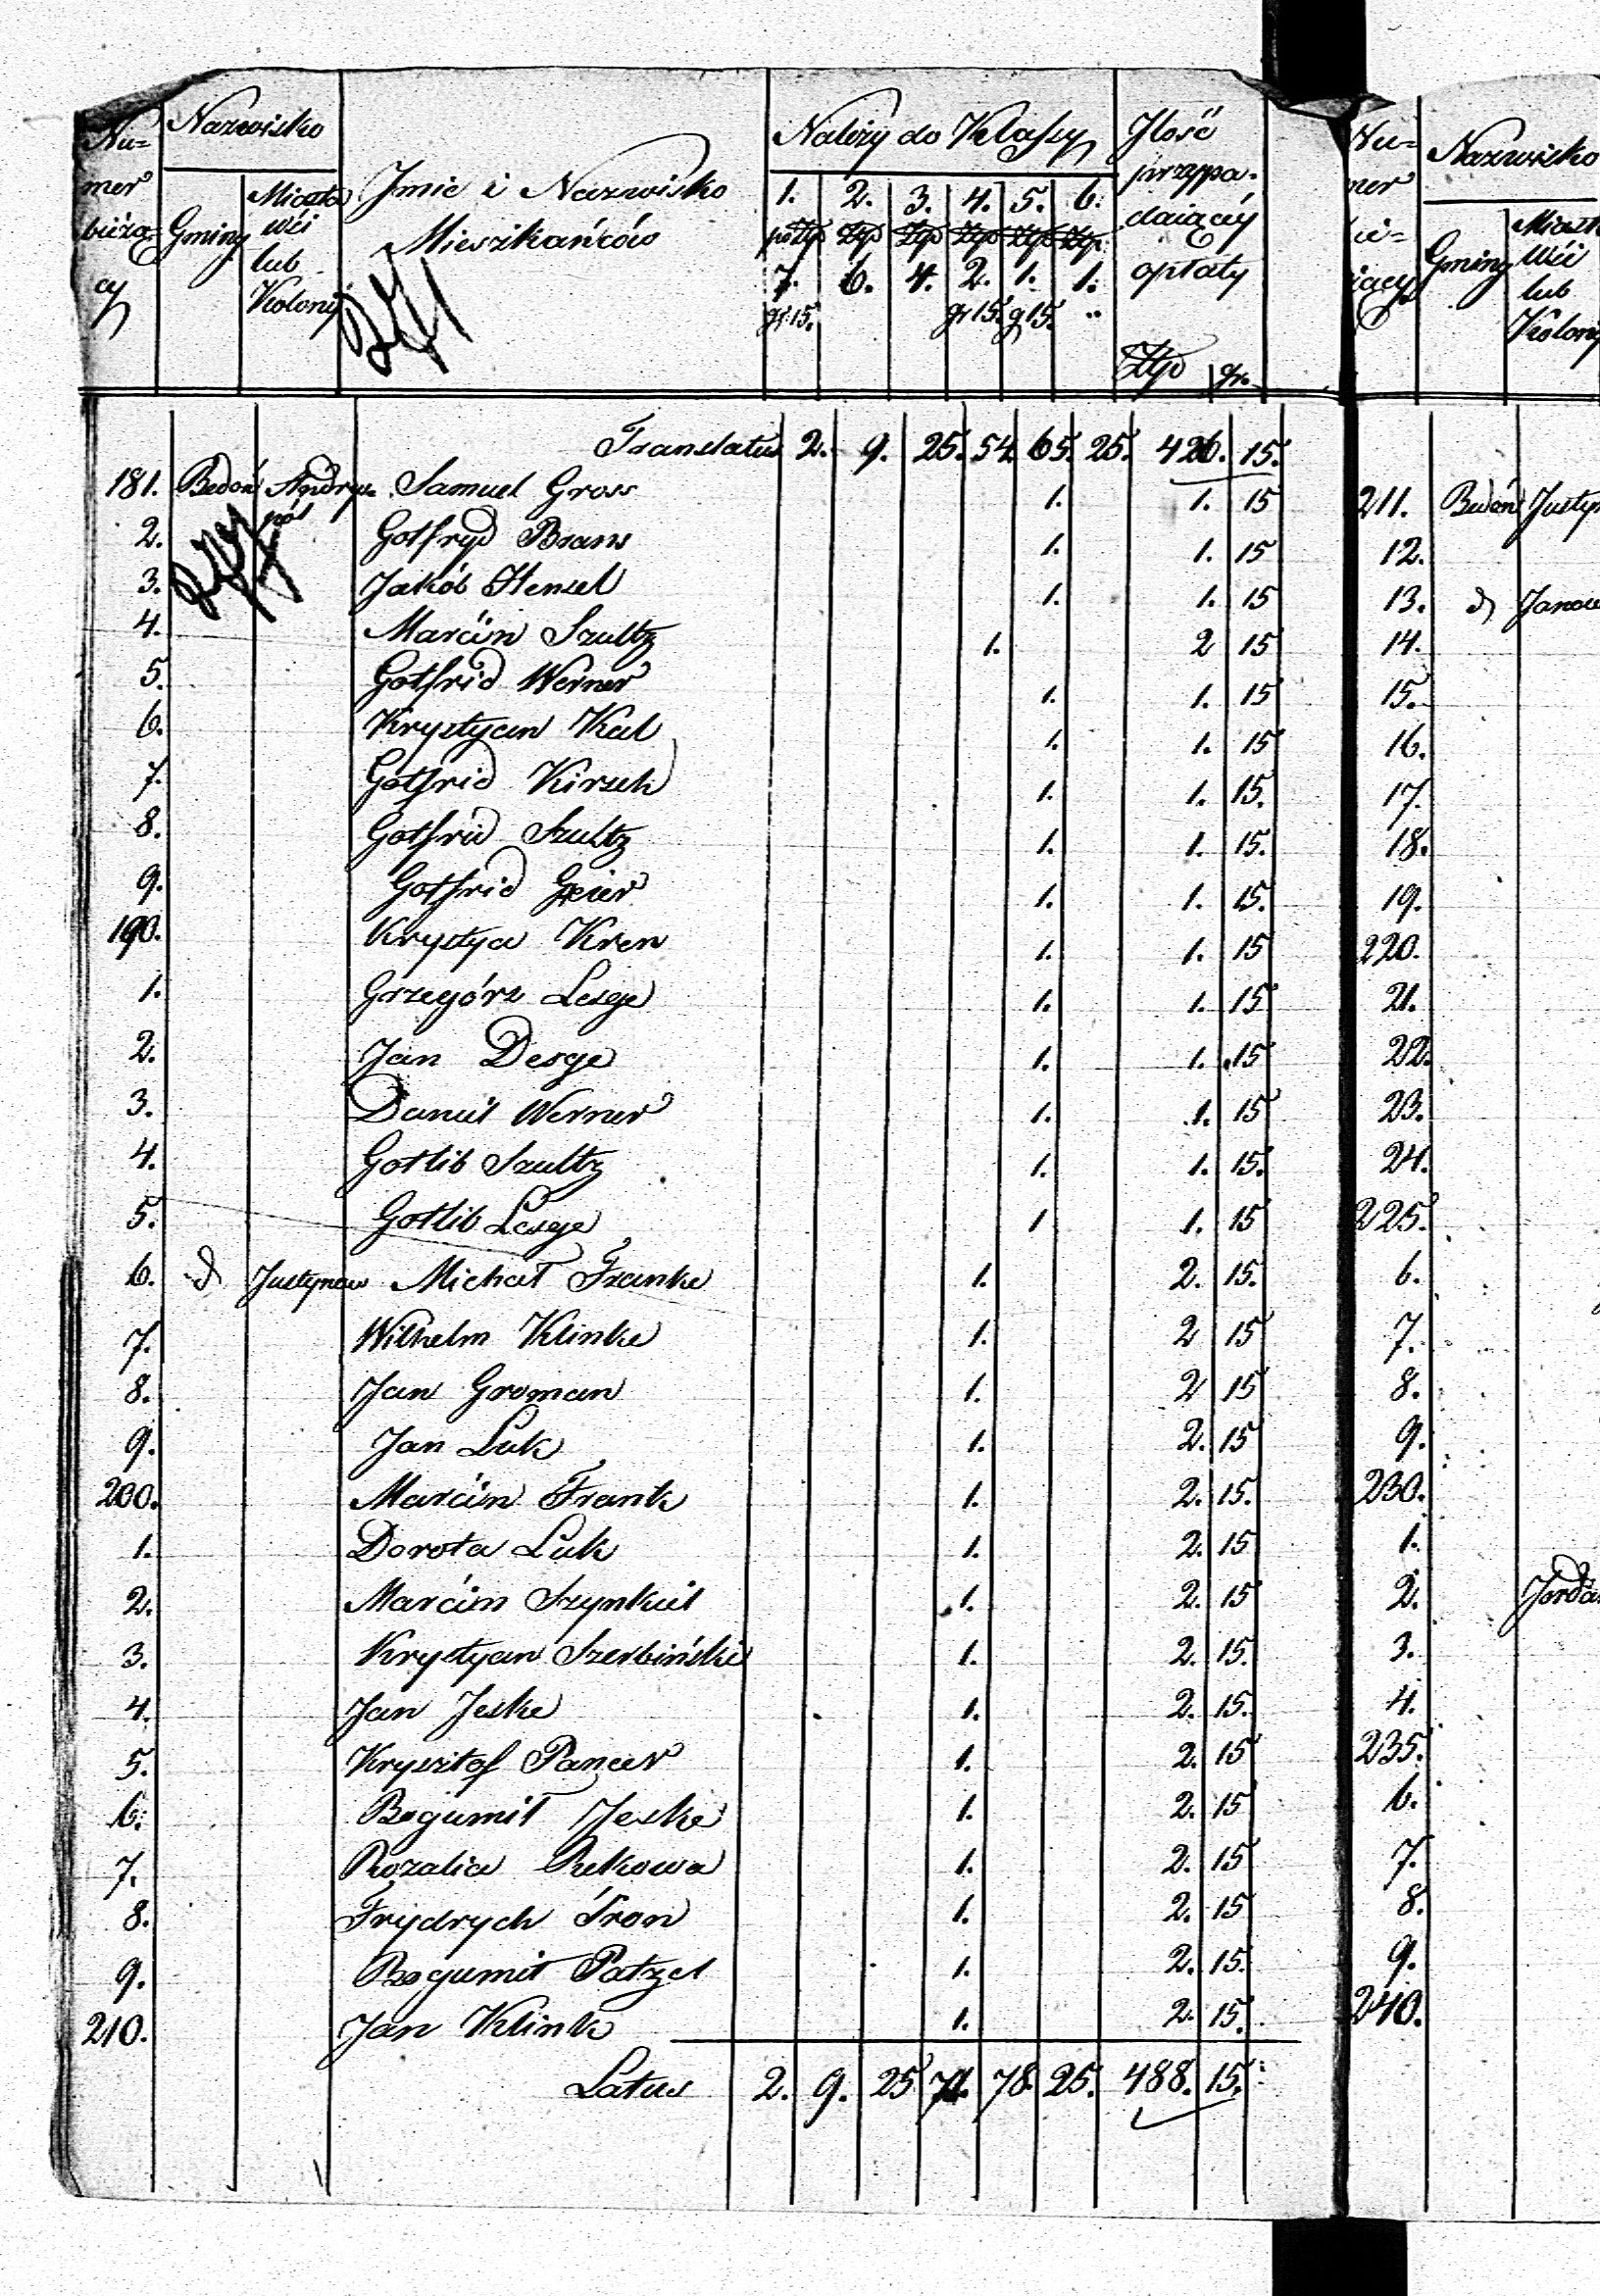 Nu=
mer
bieżą=
cy
Nazwisko
Gminy
Miasta
wśi
lub
Kolonij
Jmie i Nazwisko
Mieszkańców
Należy do Klassy
1. 2. 3. 4. 5. 6.
po Złp Złp Złp Złp Złp Złp.
7. 6. 4. 2. 1. 1.
gr 15. gr 15. g 15. "
Jlość
przypa-
daiącey
opłaty
Złp gr.
Translatus 2. 9. 25. 54. 65. 25. 426. 15.
181. Bedoń Andrze pól Samuel Gross 1. 1. 15
2. Gotfryd Brans 1. 1. 15
3. Jakób Hensel 1. 1. 15
4. Marcin Szultz 1. 2 15
5. Gotfrid Werner 1. 1. 15
6. Krystyan Kal 1. 1. 15
7. Gotfrid Kirsch 1. 1. 15.
8. Gotfrid Szultz 1. 1. 15.
9. Gotfrid Geier 1. 1. 15.
190. Krystya Kren 1. 1. 15
1. Grzegórz Lesge 1. 1. 15
2. Jan Desge 1. 1. 15
3. Daniel Werner 1. 1. 15
4. Gotlib Szultz 1. 1. 15.
5. Gotlib Lesge 1 1. 15
6. d Justynow Michał Franke 1. 2. 15.
7. Wilhelm Klinke 1. 2 15
8. Jan Groman 1. 2 15
9. Jan Luk 1. 2. 15
200. Marcin Frank 1. 2. 15.
1. Dorota Luk 1. 2. 15
2. Marcin Szynkiel 1. 2. 15
3. Krystyan Szerbiński 1. 2. 15.
4. Jan Jeske 1. 2. 15.
5. Krysztof Pancer 1. 2. 15
6. Bogumił Jeske 1. 2. 15
7. Rozalia 1. 2. 15
8. Frydrych Tron 1. 2. 15
9. Bogumił Patzel 1. 2. 15.
210. Jan Klink 1. 2. 15.
Latus 2. 9. 25 71. 78. 25. 488. 15.
Nazwisko
Gminy
lub
211. Bedoń
12.
13. d
14.
15.
16.
17.
18.
19.
220.
21.
22.
23.
24.
225.
6.
7.
8.
9.
230.
1.
2.
3.
4.
235.
6.
7.
8.
9.
240.